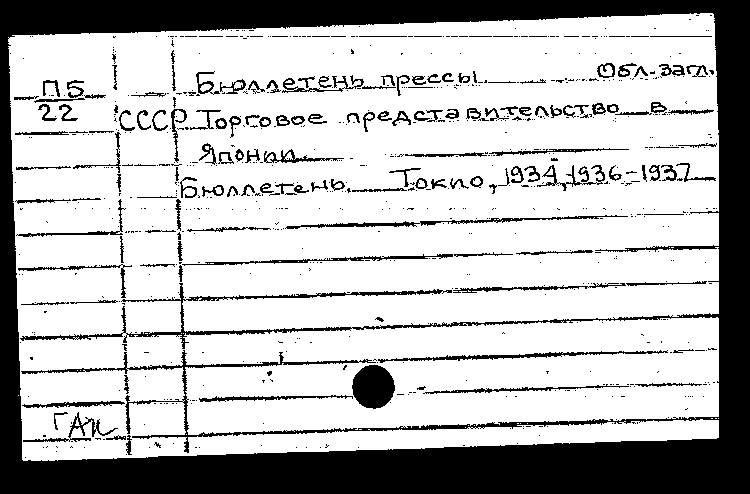 Бюллетень прессы. Обл. загл.
ПБ
22
СССР Торговое представительство в
Японии.
Бюллетень. Токио, 1934, 1936-1937